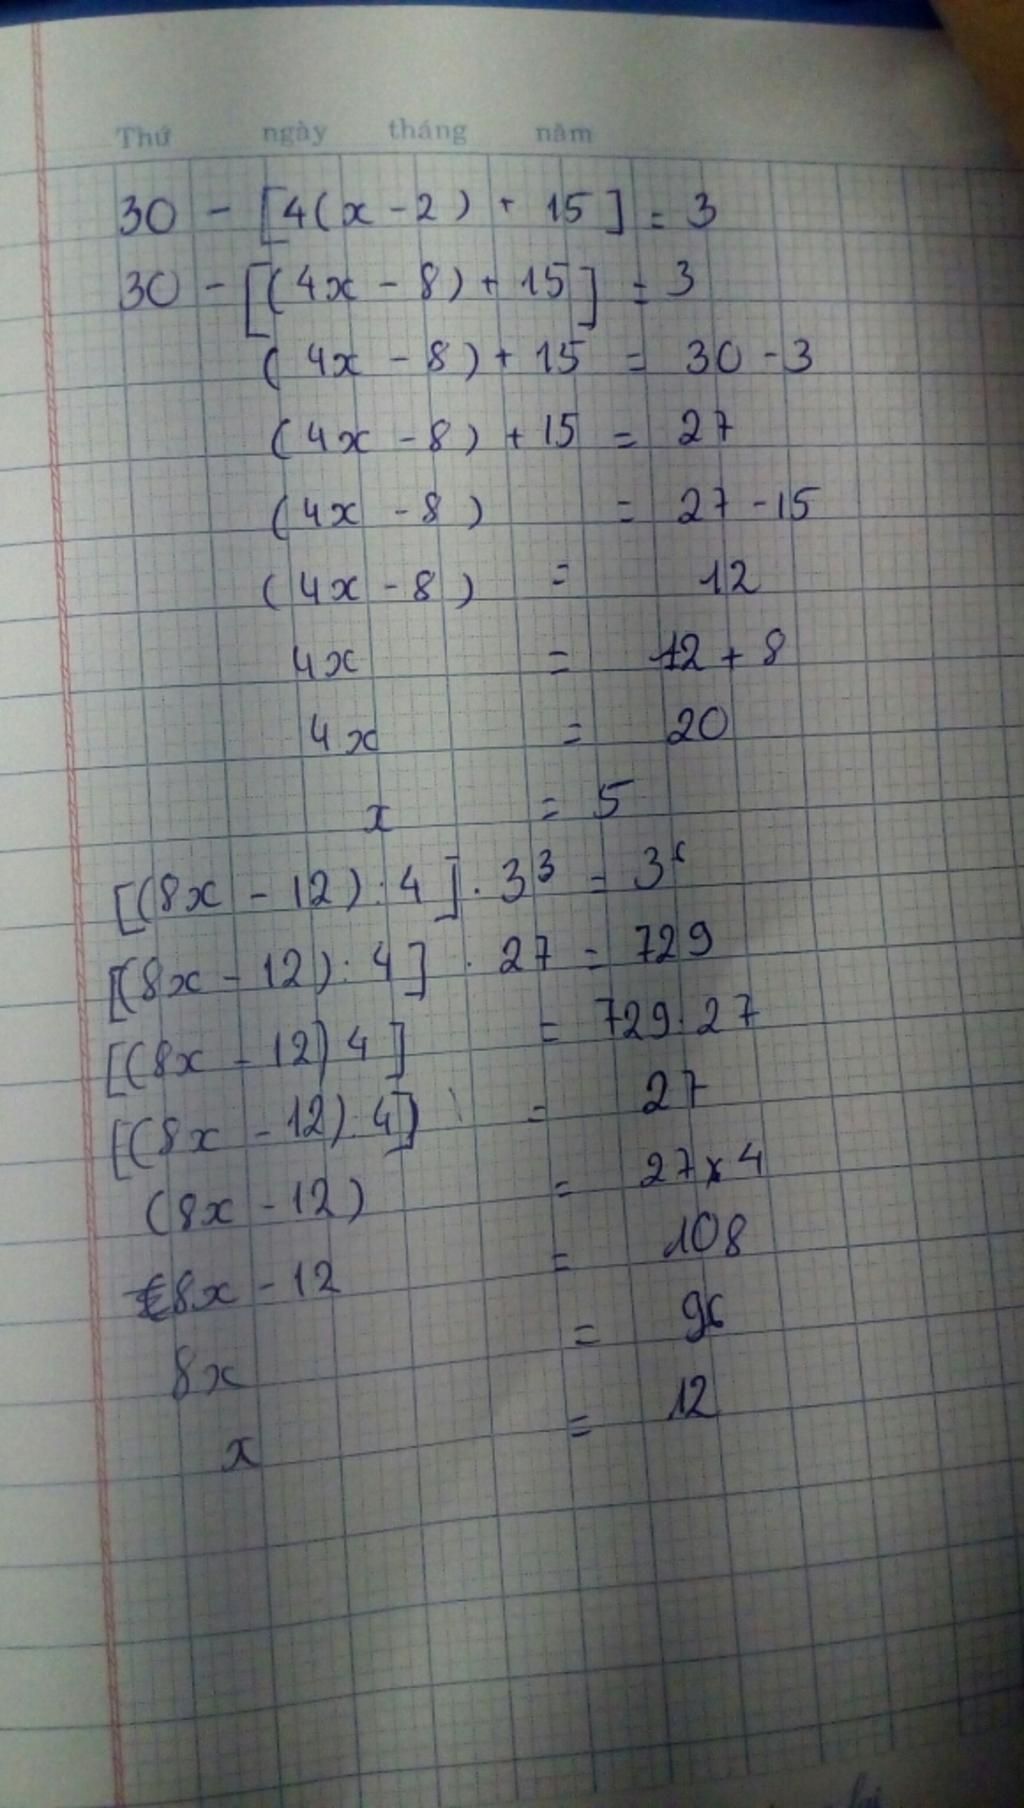 Thứ ngày tháng năm
30 - [4(x - 2) + 15] = 3
30 - [(4x - 8) + 15] = 3
(4x - 8) + 15 = 30 - 3
(4x - 8) + 15 = 27
(4x - 8) = 27 - 15
(4x - 8) = 12
4x = 12 + 8
4x = 20
x = 5
[(8x - 12) : 4] . 3³ = 3⁶
[(8x - 12) : 4] . 27 = 729
[(8x - 12) 4] = 729 : 27
[(8x - 12) : 4] = 27
(8x - 12) = 27 x 4
8x - 12 = 108
8x = 96
x = 12